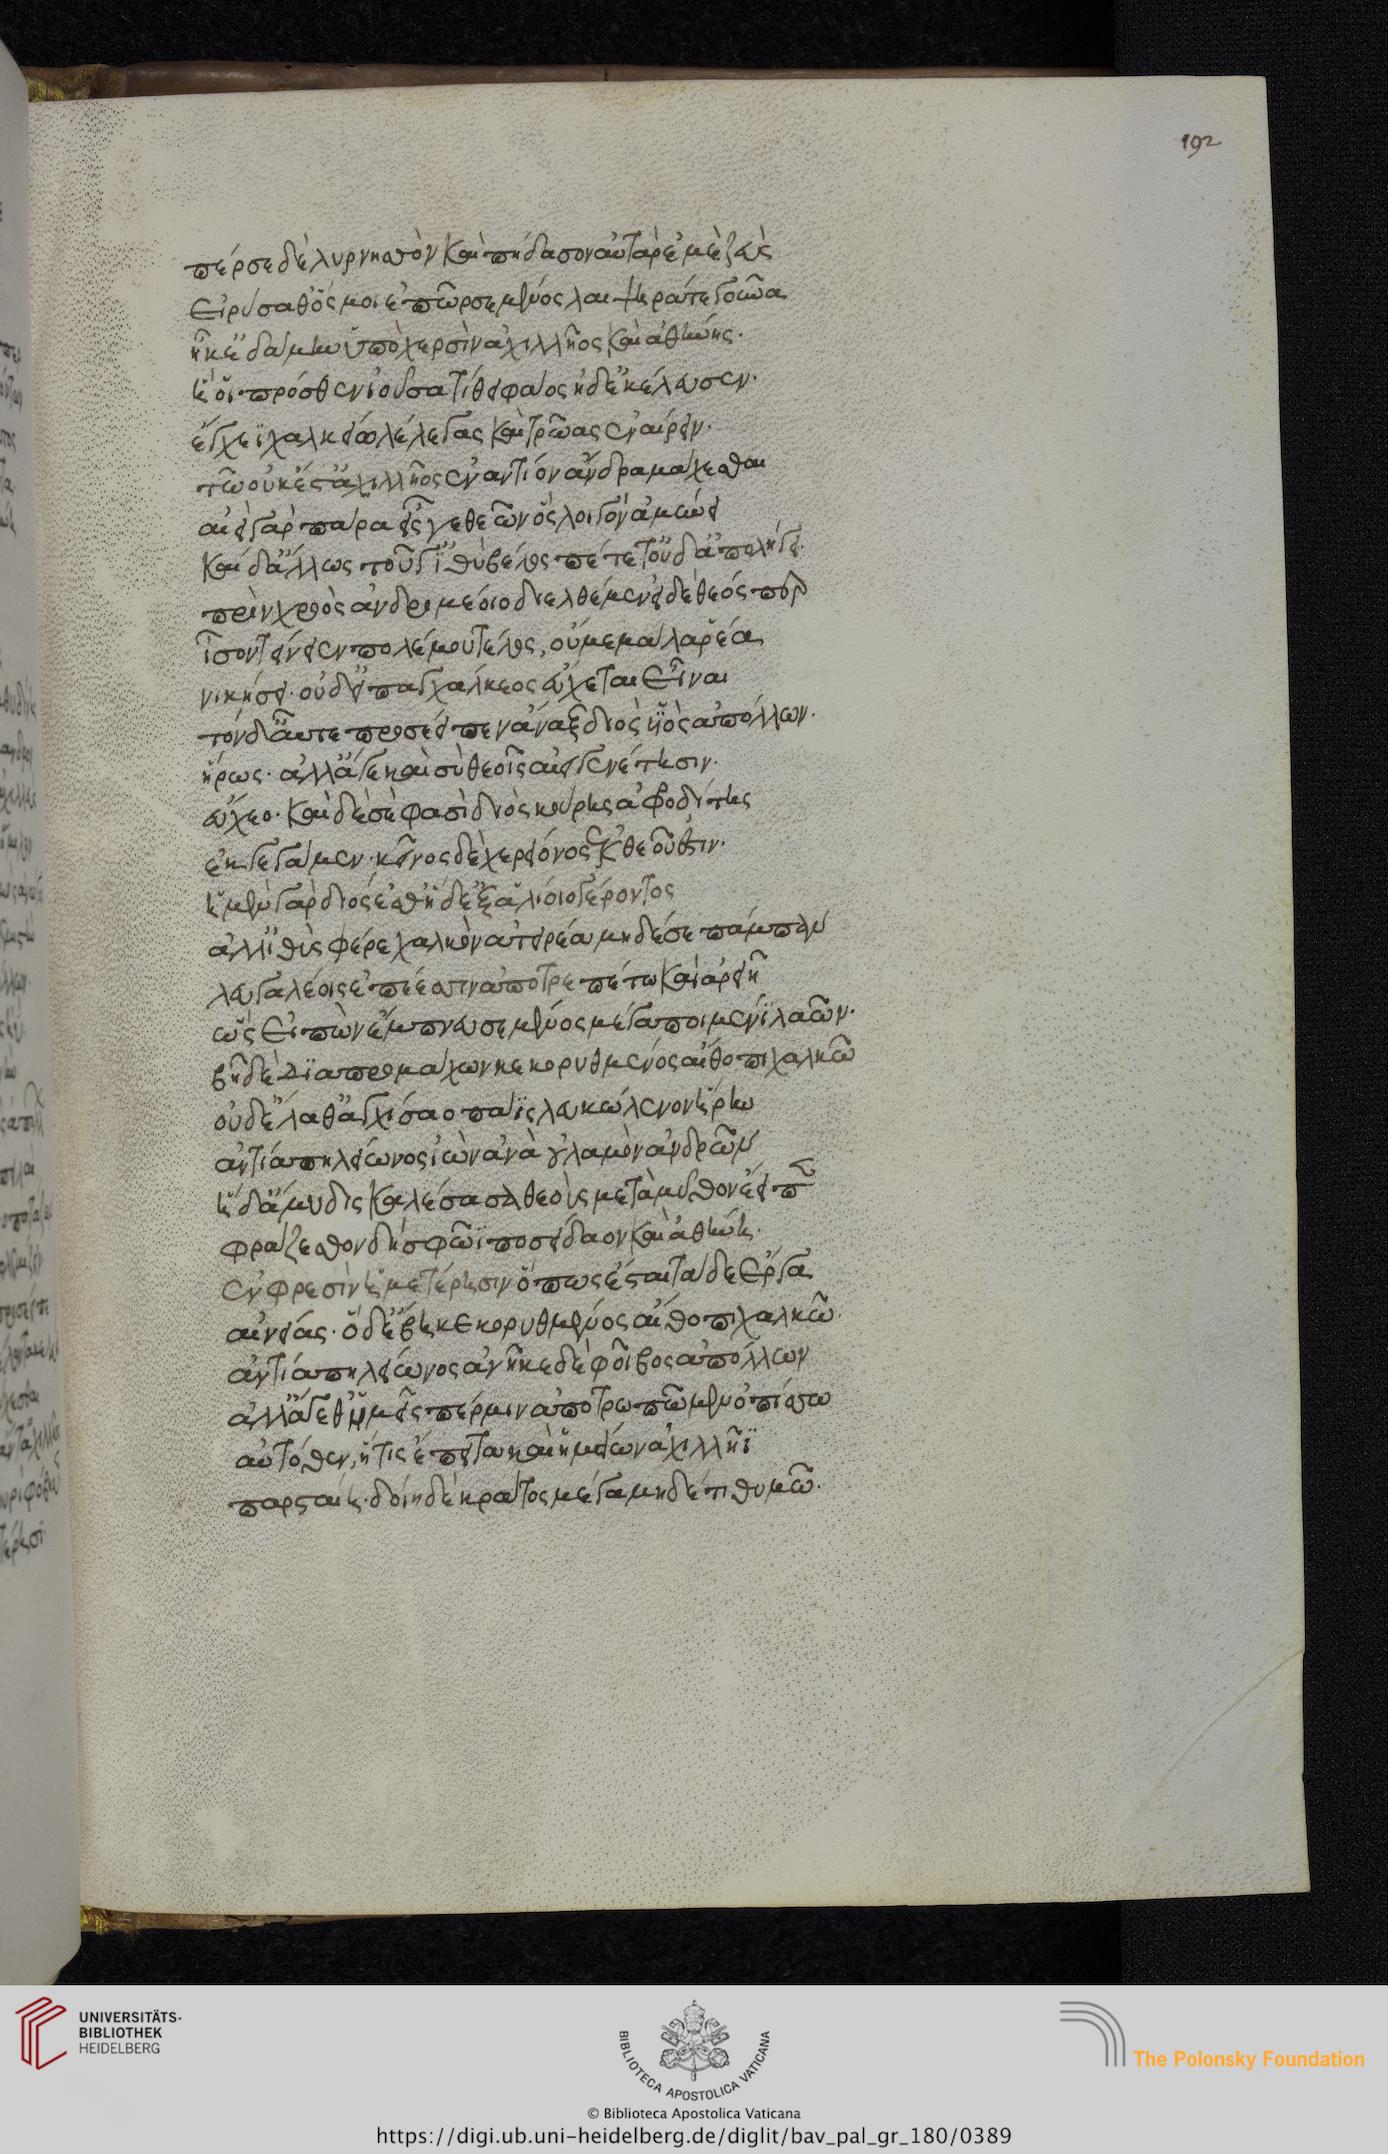 192
πέρσε δὲ λυρνησὸν καὶ πήδασον αὐτὰρ ἐμὲ ζεὺς
εἰρύσαθ' ὅς μοι ἐπῶρσε μένος λαιψηρά τε γοῦνα
ἦ κ' ἐδάμην ὑπὸ χερσὶν ἀχιλλῆος καὶ ἀθήνης.
ἥ οἱ πρόσθεν ἰοῦσα τίθει φάος ἠδ' ἐκέλευσεν.
ἔγχεϊ χαλκείω λέλεγας καὶ τρῶας ἐναίρειν.
τῶ οὐκ ἔστ' ἀχιλλῆος ἐναντίον ἄνδρα μάχεσθαι
αἰεὶ γὰρ πάρα εἷς γε θεῶν ὃς λοιγὸν ἀμύνει
καί δ' ἄλλως τοῦ γ' ἰθὺ βέλος πέτετ' οὐδ' ἀπολήγει.
πρὶν χροὸς ἀνδρομέοιο διελθέμεν εἰ δὲ θεός περ
ἶσον τείνειεν πολέμου τέλος, οὔ με μάλα ῥέα
νικήσει. οὐδ' εἰ παγχάλκεος εὔχεται εἶναι
τόνδ' αὖτε προσέειπεν ἄναξ διὸς υἱὸς ἀπόλλων.
ἥρως. ἀλλ' ἄγε καὶ σὺ θεοῖς αἰειγενέτησιν.
εὔχεο. καὶ δὲ σὲ φασὶ διὸς κούρης ἀφροδίτης
ἐκγεγάμεν. κεῖνος δὲ χερείονος ἐκ θεοῦ ἐστιν.
ἡ μὲν γὰρ διός ἐσθ' ἡ δ' ἐξ ἁλίοιο γέροντος
ἀλλ' ἰθὺς φέρε χαλκὸν ἀτειρέα μηδέ σε πάμπαν
λευγαλέοις ἐπέεσσιν ἀποτρεπέτω καὶ ἀρειῆ
ὣς εἰπὼν ἔμπνευσε μένος μέγα ποιμένι λαῶν.
βῆ δὲ διὰ προμάχων κεκορυθμένος αἴθοπι χαλκῶ
οὐδ' ἔλαθ' ἀγχίσαο πάϊς λευκώλενον ἥρην
ἀντία πηλείωνος ἰὼν ἀνὰ οὐλαμὸν ἀνδρῶν
ἡ δ' ἄμυδις καλέσασα θεοὺς μετὰ μῦθον ἔειπεν
φράζεσθον δὴ σφῶϊ ποσείδαον καὶ ἀθήνη.
ἐν φρεσὶν ὑμετέρησιν ὅπως ἔσται τάδε ἔργα
αἰνείας. ὅδ' ἔβη κεκορυθμένος αἴθοπι χαλκῶ.
ἀντία πηλείωνος ἀνῆκε δὲ φοῖβος ἀπόλλων
ἀλλ' ἄγεθ' ἡμεῖς πέρ μιν ἀποτρωπῶμεν ὀπίσσω
αὐτόθεν, ἤ τις ἔπειτα καὶ ἡμείων ἀχιλλῆϊ
παρσταίη. δοίη δὲ κράτος μέγα μηδέ τι θυμῶ.
UNIVERSITÄTS-
BIBLIOTHEK
HEIDELBERG
BIBLIOTECA APOSTOLICA VATICANA
The Polonsky Foundation
© Biblioteca Apostolica Vaticana
https://digi.ub.uni-heidelberg.de/diglit/bav_pal_gr_180/0389